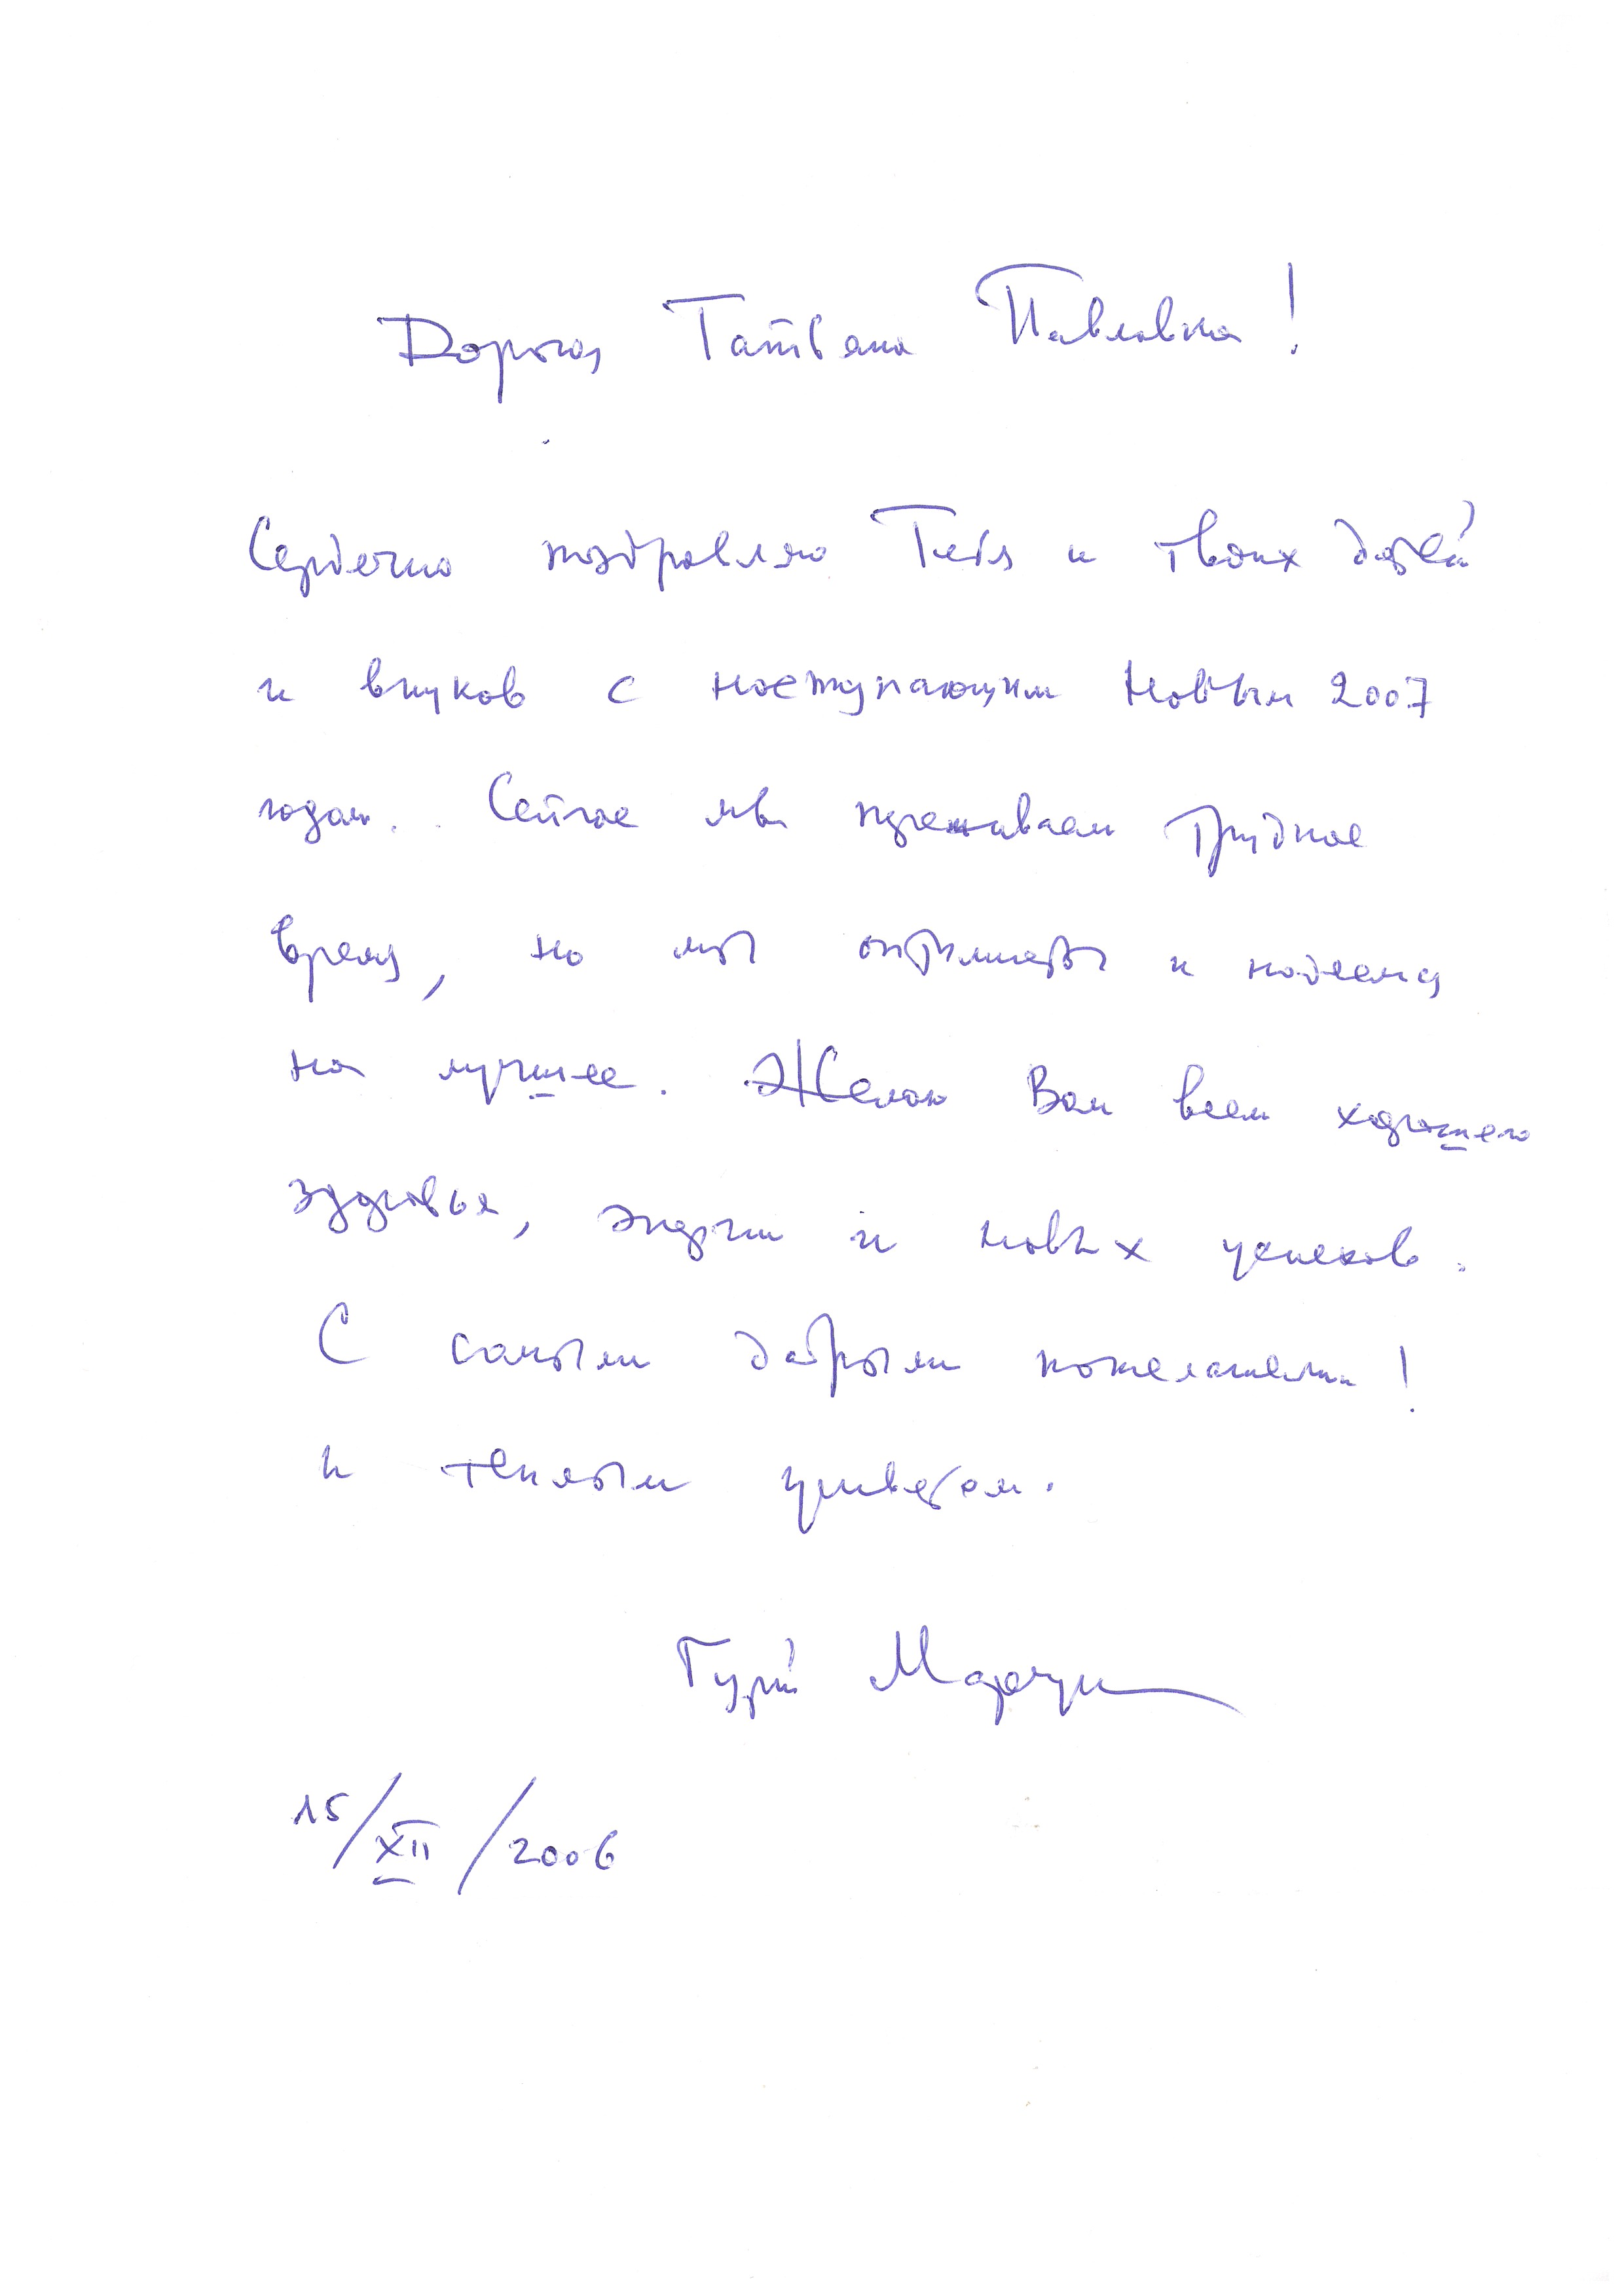 Дорогая Татьяна Павловна!
Сердечно поздравляю Тебя и твоих детей
и внуков с наступающим Новым 2007
годом. Сейчас мы переживаем трудное
время, но мы оптимисты и надеемся
на лучшее. Желаю Вам всем хорошего
здоровья, энергии и новых успехов.
С самыми добрыми пожеланиями!
и теплым приветом.
Гурий Марчук
15/XII/2006